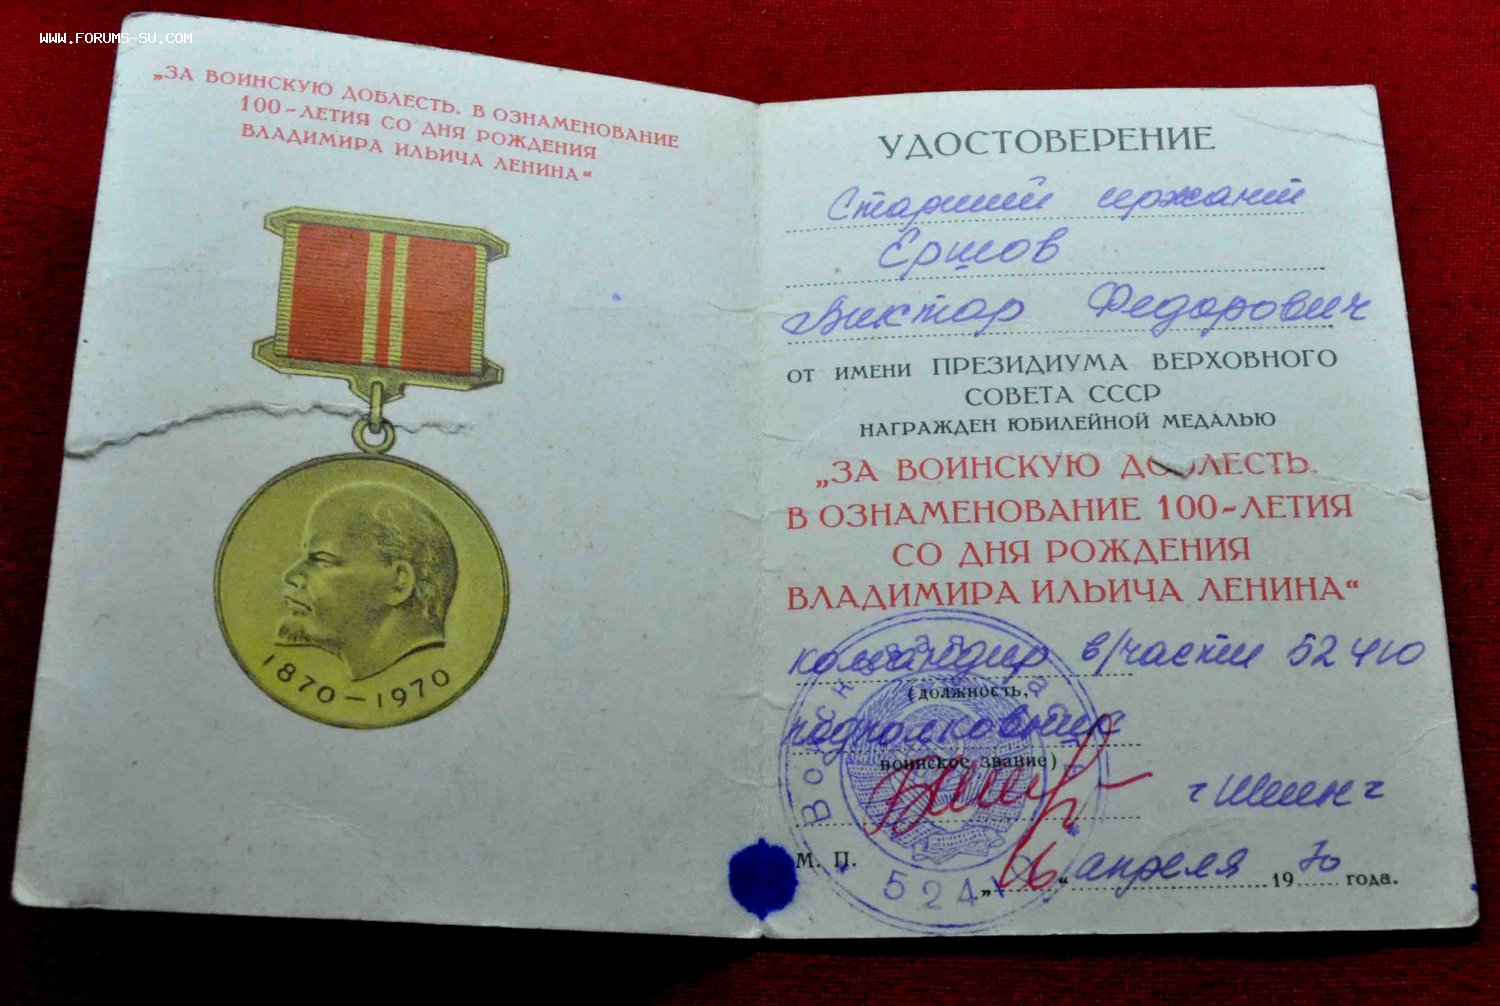 WWW.FORUMS-SU.COM
„ЗА ВОИНСКУЮ ДОБЛЕСТЬ. В ОЗНАМЕНОВАНИЕ
100-ЛЕТИЯ СО ДНЯ РОЖДЕНИЯ
ВЛАДИМИРА ИЛЬИЧА ЛЕНИНА“
1870-1970
УДОСТОВЕРЕНИЕ
Старший
Ершов
Виктор Федорович
ОТ ИМЕНИ ПРЕЗИДИУМА ВЕРХОВНОГО
СОВЕТА СССР
НАГРАЖДЕН ЮБИЛЕЙНОЙ МЕДАЛЬЮ
„ЗА ВОИНСКУЮ ДОБЛЕСТЬ.
В ОЗНАМЕНОВАНИЕ 100-ЛЕТИЯ
СО ДНЯ РОЖДЕНИЯ
ВЛАДИМИРА ИЛЬИЧА ЛЕНИНА“
командир в/части 52410
(должность,
подполковник
воинское звание)
М. П.
„16“ апреля 1970 года.